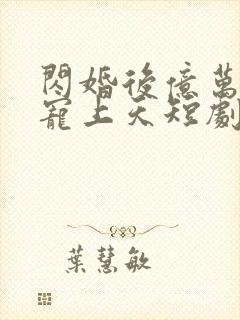 閃婚後億萬
寵上天短劇
葉慧敏